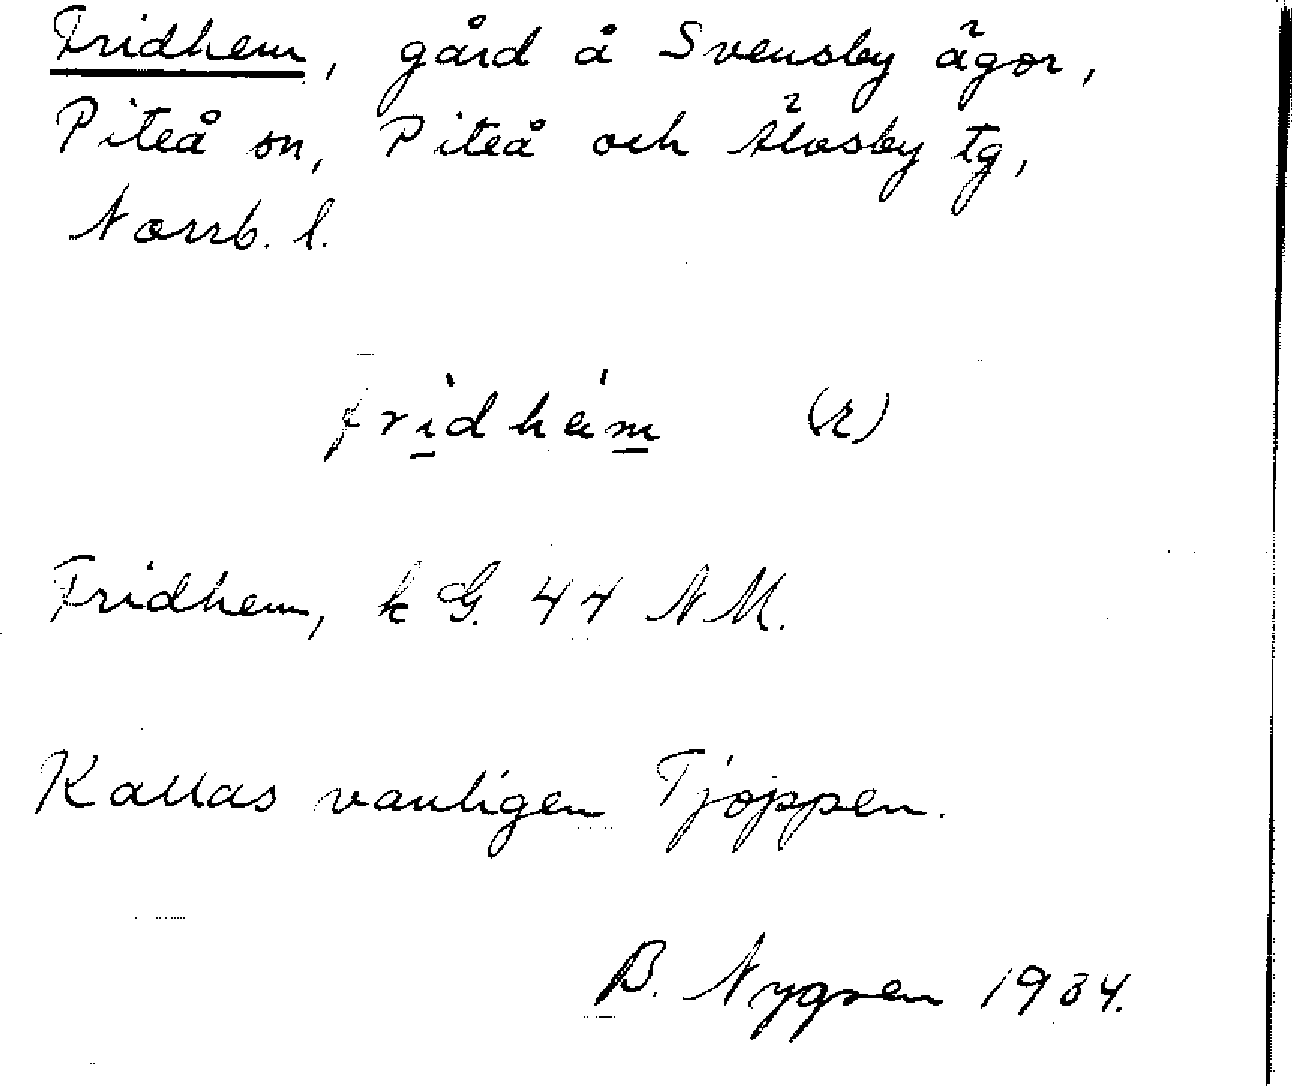 Fridhem, gård å Svensby ägor,
Piteå sn, Piteå och Älvsby tg,
Norrb. l.
fri̠dhàim̠ (R)
Fridhem, k G. 44 NM.
Kallas vanligen Tjoppen.
B. Nygren 1934.